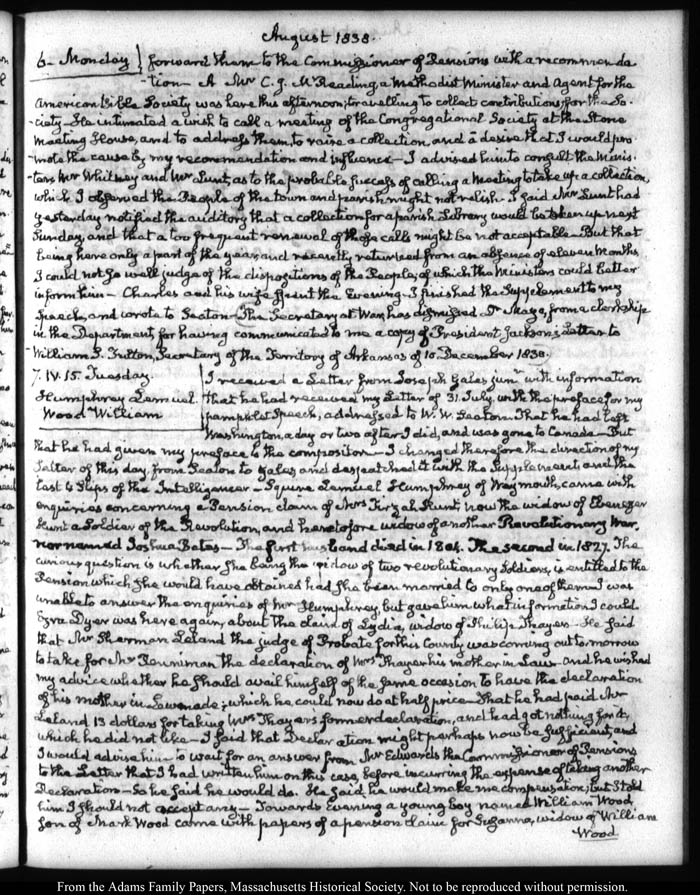 August 1838.
6. Monday } forward them to the Commissioner of Pensions with a recommenda
-tion — A Mr C. J. McReading, a Methodist Minister and Agent for the
American Bible Society was here this afternoon; travelling to collect contributions for the So-
-ciety — He intimated a wish to call a meeting of the Congregational Society at the Stone
Meeting House, and to address them, to raise a collection, and a desire that I would pro
-mote the cause by my recommendation and influence — I advised him to consult the Minis-
-ters Mr Whitney and Mr Lunt, as to the probable success of calling a meeting to take up a collection
which I observed the People of the town and parish might not relish. I said Mr Lunt had
yesterday notified the auditory that a collection for a parish Library would be taken up next
Sunday, and that a too frequent renewal of those calls might be not acceptable — But that
being here only a part of the year, and recently returned from an absence of eleven Months
I could not so well judge of the dispositions of the People; of which the Ministers could better
inform him — Charles and his wife spent the Evening — I finished the Supplement to my
Speech, and wrote to Seaton — The Secretary at War, has dismissed Dr Mayo, from a clerkship
in the Department, for having communicated to me a copy of President Jackson's Letter to
William S. Fulton, Secretary of the Territory of Arkansas of 10. December 1830.
7. IV. 15. Tuesday.
Humphrey Lemuel
Wood William
I received a Letter from Joseph Gales junr with information
that he had received my Letter of 31. July, with the preface for my
pamphlet Speech, addressed to W. W. Seaton — That he had left
Washington, a day or two after I did, and was gone to Canada — But
that he had given my preface to the compositor — I changed therefore the direction of my
Letter of this day, from Seaton to Gales, and despatched it with the Supplement, and the
last 4 slips of the Intelligencer — Squire Lemuel Humphrey of Weymouth, came with
enquiries concerning a Pension claim of Mrs Tirzah Hunt, now the widow of Ebenezer
Hunt a Soldier of the Revolution, and heretofore widow of another Revolutionary War,
rior named Joshua Bates — The first husband died in 1804. The second in 1827. The
curious question is whether she being the widow of two revolutionary Soldiers, is entitled to the
Pension which she would have obtained had she been married to only one of them — I was
unable to answer the enquiries of Mr Humphrey, but gave him what information I could
Ezra Dyer was here again, about the claim of Lydia, widow of Philip Thayer — He said
that Mr Sherman Leland the judge of Probate for this County was coming out to-morrow
to take for Mr Penniman the declaration of Mrs Thayer his mother in Law — and he wished
my advice whether he should avail himself of the same occasion to have the declaration
of his mother in Law made; which he could now do at half price — That he had paid Mr
Leland 13 dollars for taking Mrs Thayer's former declaration, and had got nothing for it,
which he did not like — I said that Declaration might perhaps now be sufficient, and
I would advise him to wait for an answer from Mr Edwards the Commissioner of Pensions
to the Letter that I had written him on this case, before incurring the expense of taking another
Declaration — So he said he would do. He said he would make me compensation; but I told
him I should not accept any — Towards evening a young boy named William Wood,
son of Mark Wood came with papers of a pension claim for Suzanna, widow of William
Wood
From the Adams Family Papers, Massachusetts Historical Society. Not to be reproduced without permission.